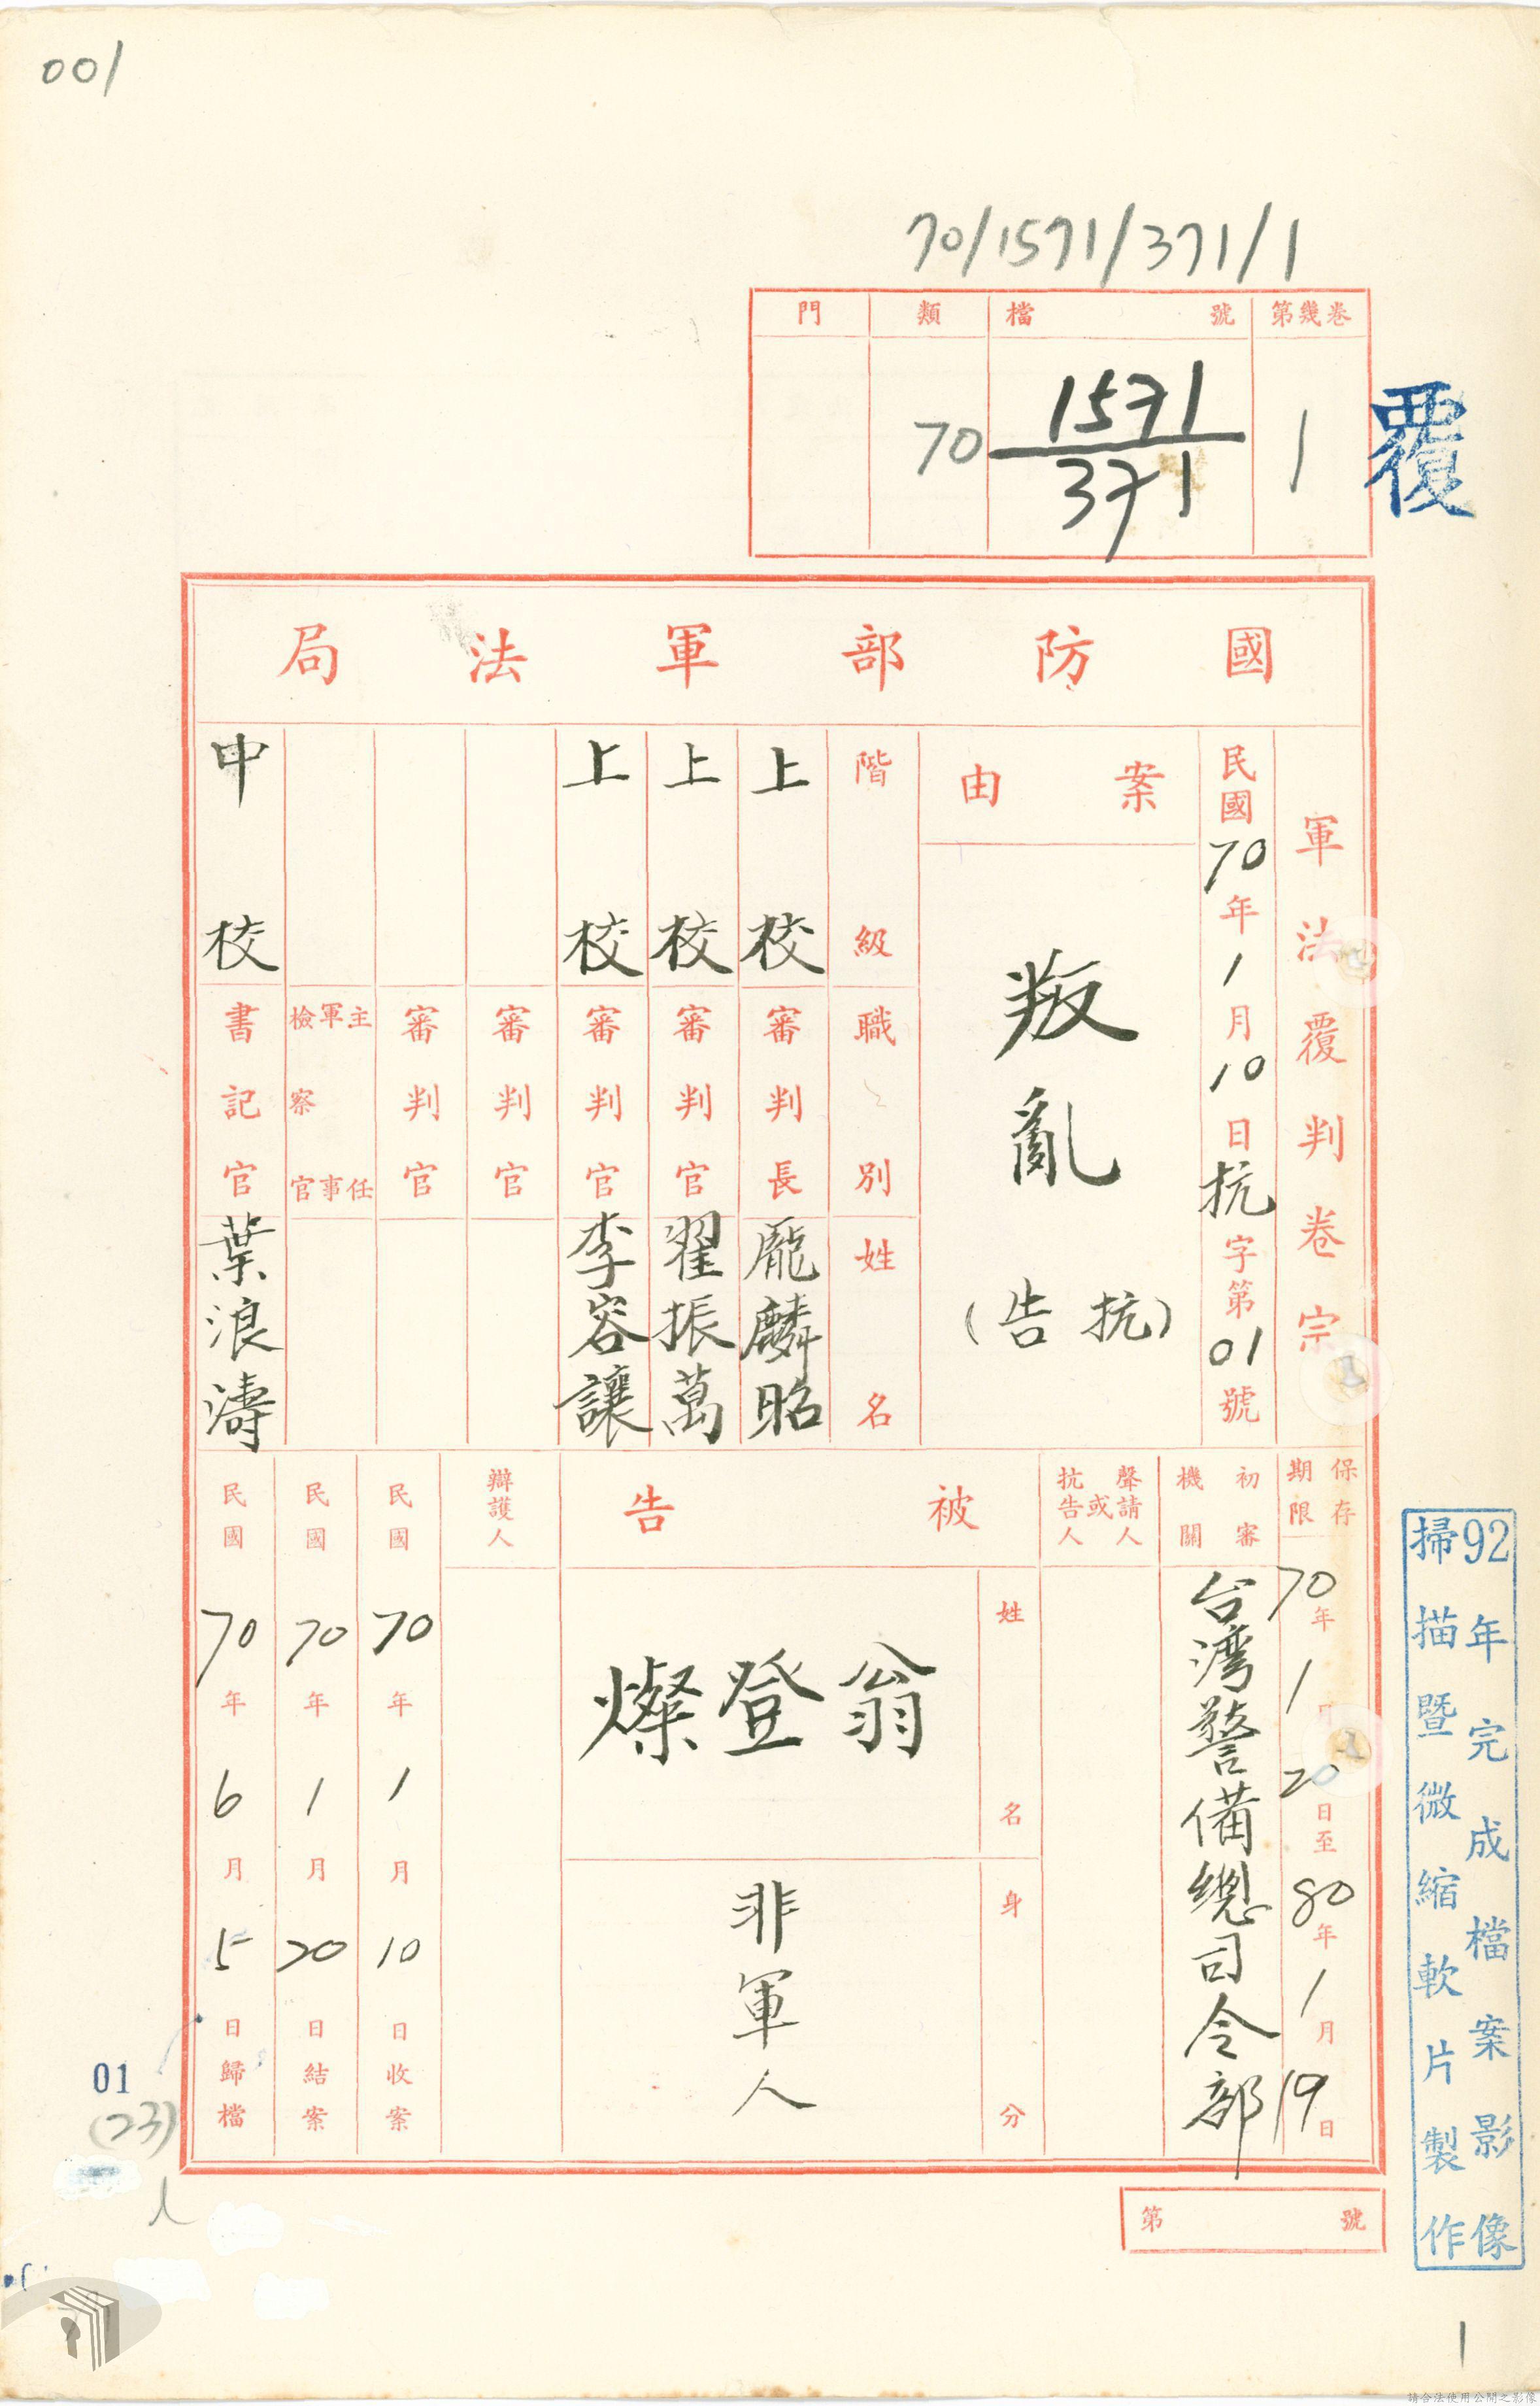 001
70/1571/371/1
第幾卷 1
檔號 1571/371
類 70
門
覆
國防部軍法局
軍法覆判卷宗
民國70年1月10日抗字第01號
案由
叛亂
(抗告)
階級 職別 姓名
上校 審判長 龎麟昭
上校 審判官 翟振萬
上校 審判官 李容讓
審判官
審判官
主任軍事檢察官
中校 書記官 葉浪濤
保存期限 70年1月20日至80年1月19日
初審機關 台灣警備總司令部
聲請人或抗告人
被告
姓名 翁登燦
身分 非軍人
辯護人
民國70年1月10日收案
民國70年1月20日結案
民國70年6月5日歸檔
第 號
92年完成檔案影像
掃描暨微縮軟片製作
01
(23)
1
請合法使用公開之影像